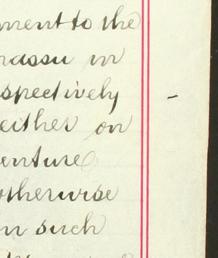 ment to the
nassu in
spectively
either on
enture
otherwise
on such